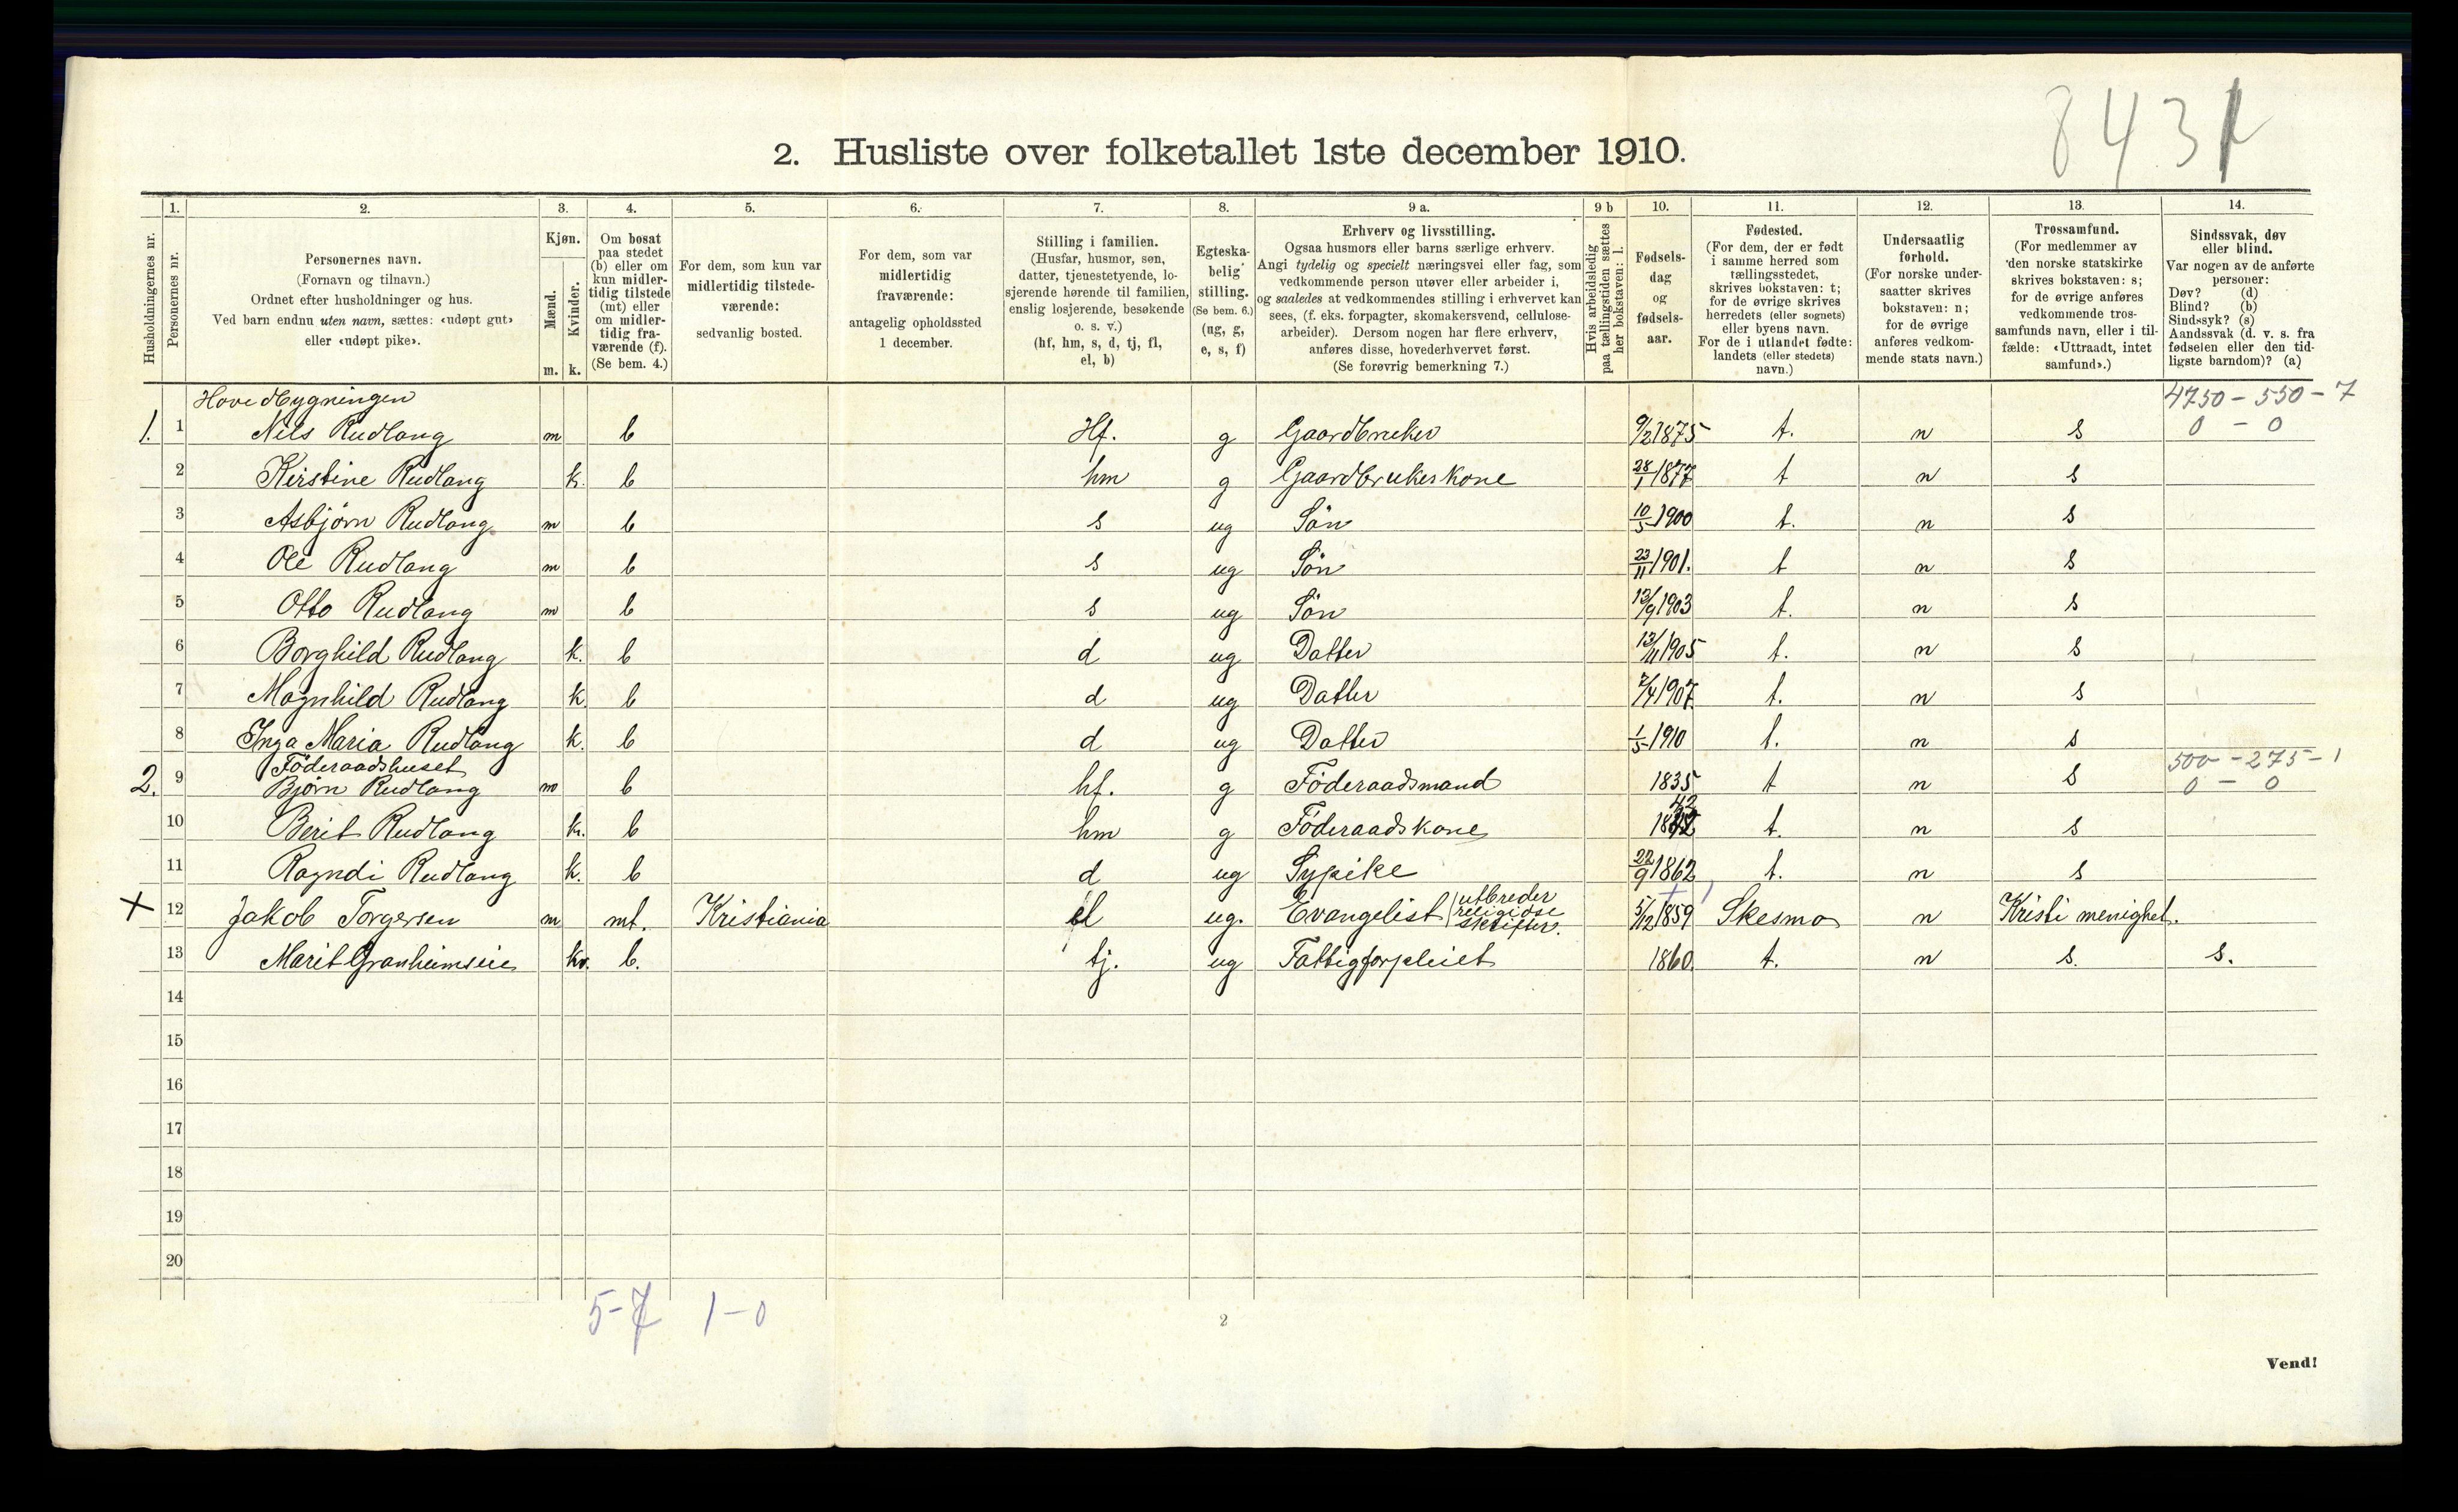 8431
2. Husliste over folketallet 1ste december 1910.
Husholdningernes nr.
1.
Personernes nr.
2.
Personernes navn.
(Fornavn og tilnavn.)
Ordnet efter husholdninger og hus.
Ved barn endnu uten navn, sættes: «udøpt gut»
eller «udøpt pike».
3.
Kjøn.
Mænd.
Kvinder.
m. k.
4.
Om bosat
paa stedet
(b) eller om
kun midler-
tidig tilstede
(mt) eller
om midler-
tidig fra-
værende (f).
(Se bem. 4.)
5.
For dem, som kun var
midlertidig tilstede-
værende:
sedvanlig bosted.
6.
For dem, som var
midlertidig
fraværende:
antagelig opholdssted
1 december.
7.
Stilling i familien.
(Husfar, husmor, søn,
datter, tjenestetyende, lo-
sjerende hørende til familien,
enslig losjerende, besøkende
o. s. v.)
(hf, hm, s, d, tj, fl,
el, b)
8.
Egteska-
belig
stilling.
(Se bem. 6.)
(ug, g,
e, s, f)
9 a.
Erhverv og livsstilling.
Ogsaa husmors eller barns særlige erhverv.
Angi tydelig og specielt næringsvei eller fag, som
vedkommende person utøver eller arbeider i,
og saaledes at vedkommendes stilling i erhvervet kan
sees, (f. eks. forpagter, skomakersvend, cellulose-
arbeider). Dersom nogen har flere erhverv,
anføres disse, hovederhvervet først.
(Se forøvrig bemerkning 7.)
9 b
Hvis arbeidsledig
paa tællingstiden sættes
her bokstaven: l.
10.
Fødsels-
dag
og
fødsels-
aar.
11.
Fødested.
(For dem, der er født
i samme herred som
tællingsstedet,
skrives bokstaven: t;
for de øvrige skrives
herredets (eller sognets)
eller byens navn.
For de i utlandet fødte:
landets (eller stedets)
navn.)
12.
Undersaatlig
forhold.
(For norske under-
saatter skrives
bokstaven: n;
for de øvrige
anføres vedkom-
mende stats navn.)
13.
Trossamfund.
(For medlemmer av
den norske statskirke
skrives bokstaven: s;
for de øvrige anføres
vedkommende tros-
samfunds navn, eller i til-
fælde: «Uttraadt, intet
samfund».)
14.
Sindssvak, døv
eller blind.
Var nogen av de anførte
personer:
Døv? (d)
Blind? (b)
Sindssyk? (s)
Aandssvak (d. v. s. fra
fødselen eller den tid-
ligste barndom)? (a)
Hovedbygningen 4750 - 550 - 7
1. 1 Nils Rudlang m b Hf. g Gaardbruker 9/2 1875 t. n s 0 - 0
2 Kirstine Rudlang k. b hm g Gaardbrukerskone 28/1 1877 t n s
3 Asbjørn Rudlang m b s ug Sön 10/5 1900 t. n s
4 Ole Rudlang m b s ug Sön 23/11 1901. t n s
5 Otto Rudlang m b s ug Sön 13/9 1903 t. n s
6 Borghild Rudlang k. b d ug Datter 13/11 1905 t. n s
7 Magnhild Rudlang k. b d ug Datter 7/4 1907. t. n s
8 Inga Maria Rudlang k. b d ug Datter 1/5 1910 t. n s
Föderaadshuset 500 - 275 - 1
2. 9 Bjørn Rudlang m b hf. g Föderaadsmand 1835 t n s 0 - 0
10 Berit Rudlang k. b hm g Föderaadskone 1842 t. n s
11 Ragndi Rudlang k. b d ug Sypike 22/9 1862 t. n s
X 12 Jakob Torgersen m mt. Kristiania el ug. Evangelist (utbreder religiöse skrifter. 5/12 1859 Skesmo n Kristi menighet.
13 Marit Granheimseie kv. b. tj. ug Fattigforpleiet 1860. t. n s. s.
14
15
16
17
18
19
20
5-7 1-0
2
Vend!